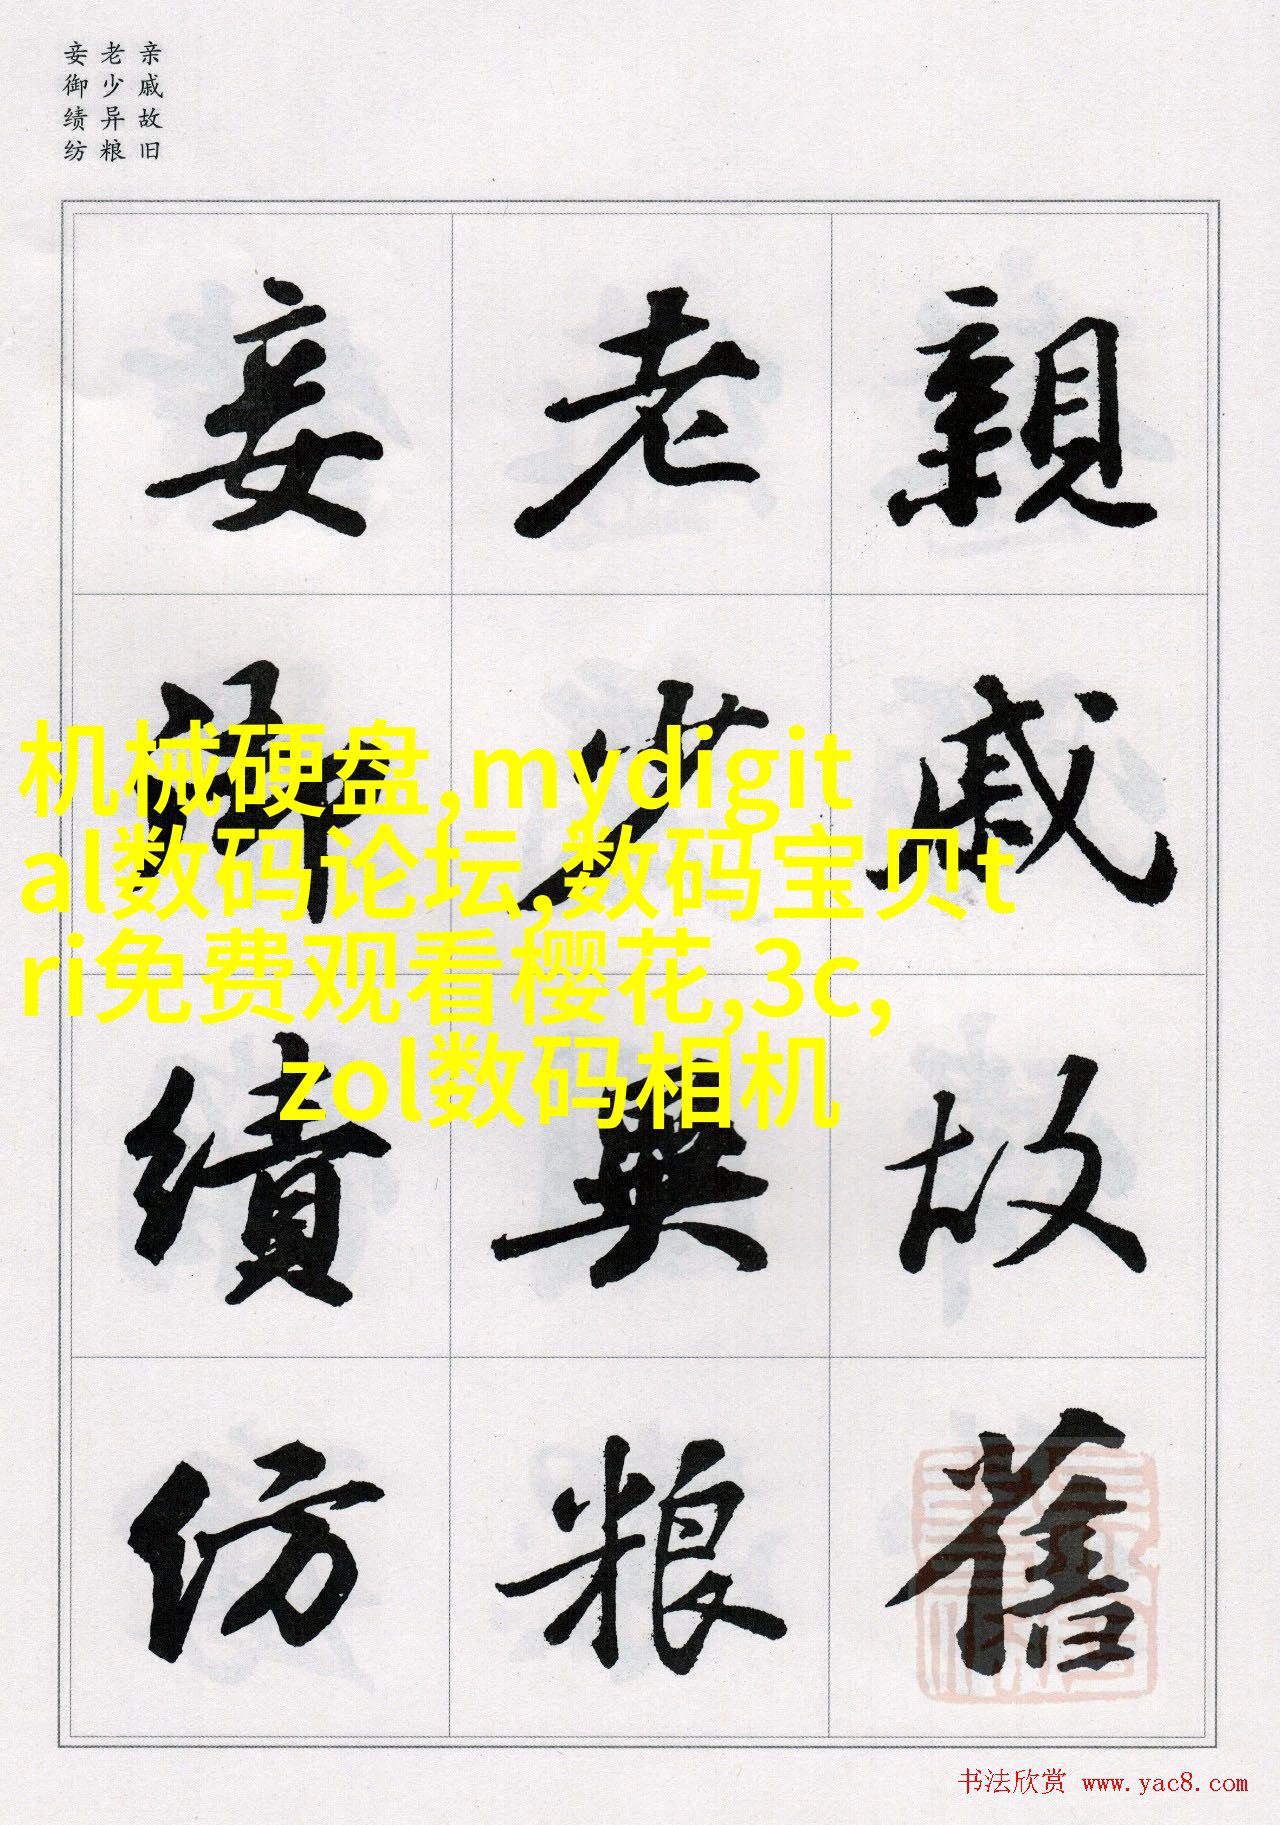 亲戚故旧
老少异粮
妾御绩纺
親戚故舊
老少異粮
妾御績纺
机械硬盘,mydigit
al数码论坛,数码宝贝t
ri免费观看樱花,3c,
zol数码相机
书法欣赏 www.yac8.com